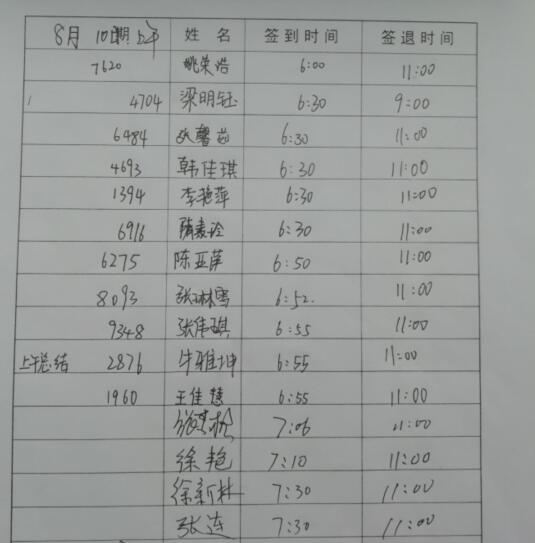 8月10日期上午 姓名 签到时间 签退时间
7620 姚荣浩 6:00 11:00
4704 梁明钰 6:30 9:00
6484 张馨 6:30 11:00
4693 韩佳琪 6:30 11:00
1394 李艳萍 6:30 11:00
6916 6:30 11:00
6275 陈亚萍 6:50 11:00
8093 张琳雪 6:52. 11:00
9348 张伟琪 6:55 11:00
上午总结 2876 牛雅坤 6:55 11:00
1960 王佳慧 6:55 11:00
7:06 11:00
徐艳 7:10 11:00
徐新林 7:30 11:00
张连 7:30 11:00